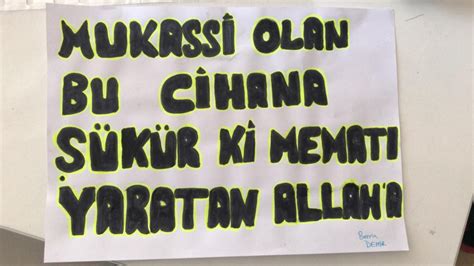 MUKASSİ OLAN
BU CİHANA
ŞÜKÜR Kİ MEMATI
YARATAN ALLAH'A
DEMİR